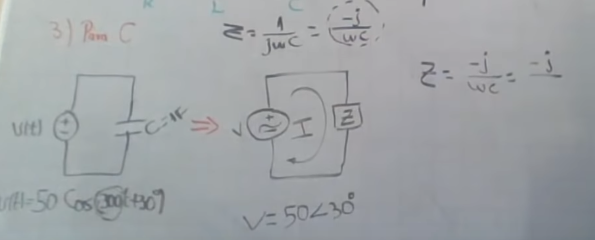 3) Para C
Z = 1/jwc = -j/wc
Z = -j/wc = -j
V(t)
C=1F
V
I
Z
v(t)=50 Cos(300t+30°)
V = 50∠30°